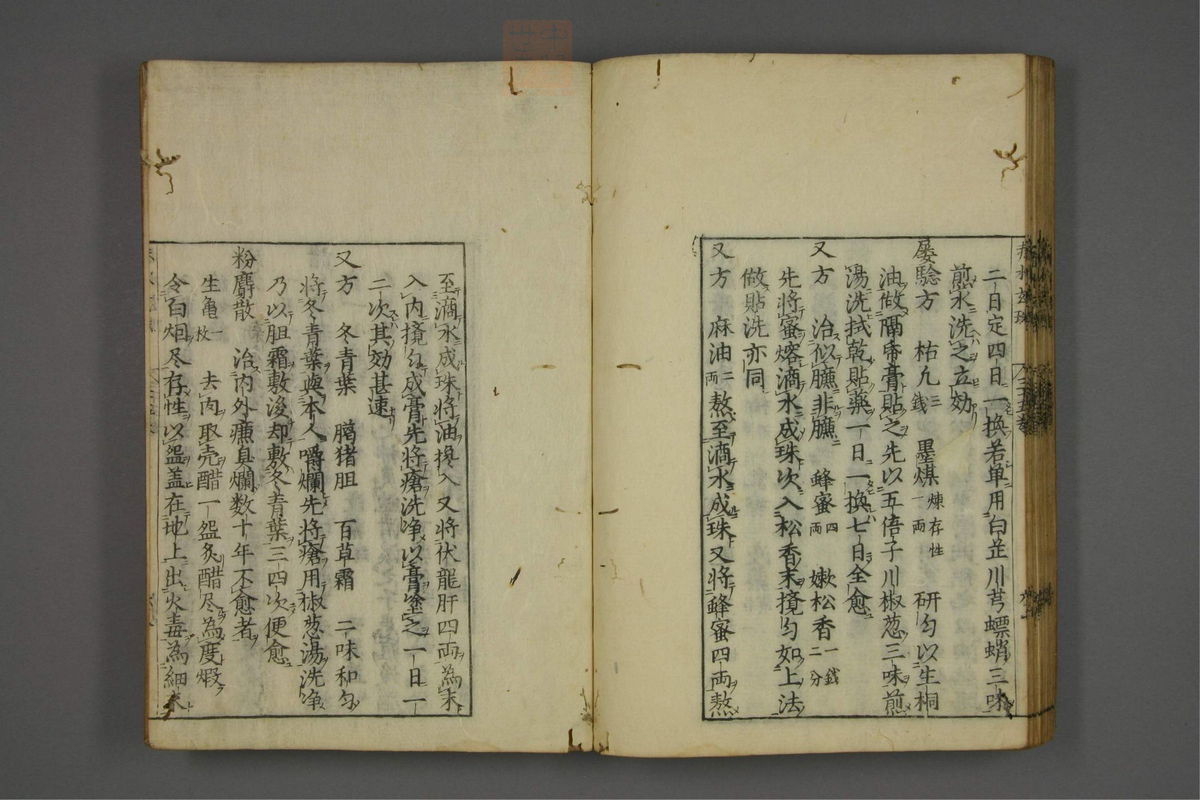 二日定四日一換若単用白芷川芎螵蛸三味
煎水洗之立効
屡驗方　枯九三錢　墨煤煉存性一両　研匀以生桐
油做隔帋膏貼之先以五倍子川椒葱三味煎
湯洗拭乾貼藥一日一換七日全愈
又方　治似臁非臁　蜂蜜四両　嫩松香一錢二分
先將蜜熔滴水成珠次入松香末攪匀如上法
做貼洗亦同
又方　麻油二両熬至滴水成珠又將蜂蜜四両熬
至滴水成珠將油攙入又將伏龍肝四両為末
入内攪匀成膏先將瘡洗净以膏塗之一日一
二次其効甚速
又方　冬青葉　臈猪胆　百草霜　二味和匀
將冬青葉與本人嚼爛先將瘡用椒葱湯洗净
乃以胆霜敷後却敷冬青葉三四次便愈
粉麝散　治内外臁臭爛数十年不愈者
生亀一枚　去肉取壳醋一盌炙醋尽為度煅
令白烟尽存性以盌盖在地上出火毒為細末